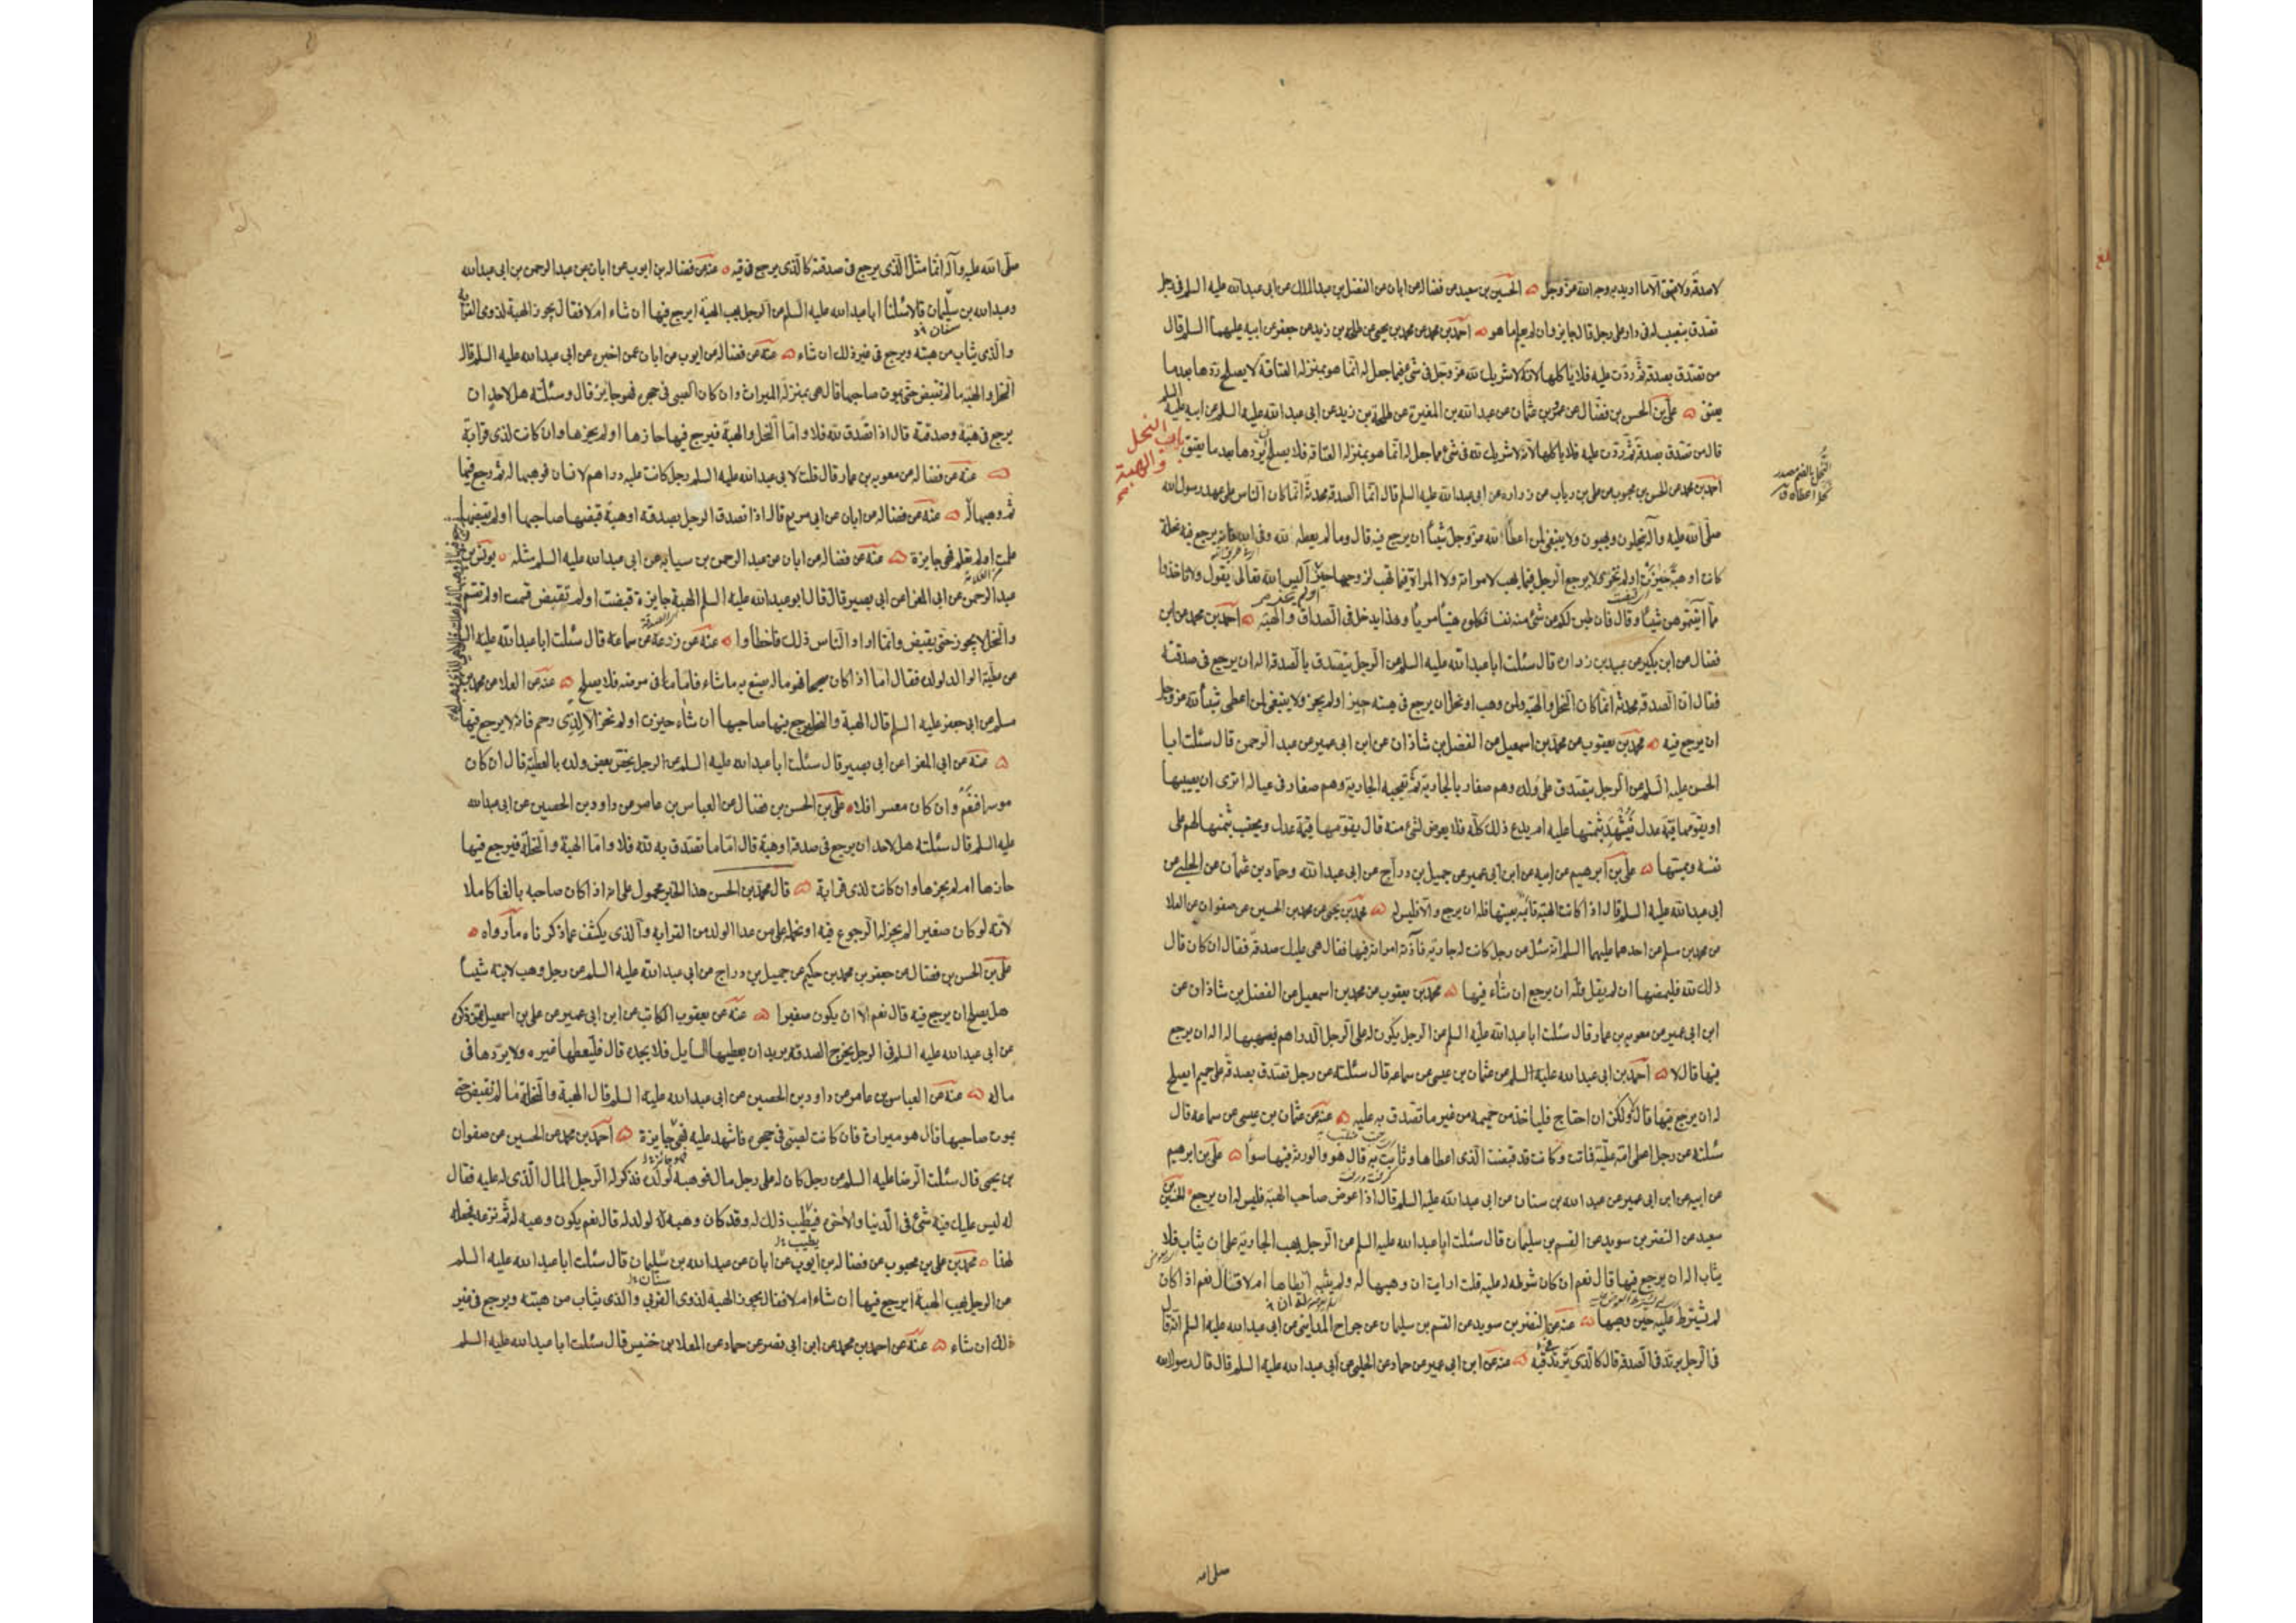 لا صدقة ولا عتق الا ما اريد به وجه الله عز وجل الحسين بن سعيد عن فضاله عن ابان عن الفضل بن عبد الملك عن ابى عبد الله عليه السلم فى رجل
تصدق بنصيب له فى دار على رجل قال جايز وان لم يعلم ما هو احمد بن محمد عن محمد بن يحيى عن طلحة بن زيد عن جعفر عن ابيه عليهما السلم قال
من تصدق بصدقة ثم ردّت عليه فلا ياكلها لانّه لا شريك لله عز وجل فى شئ مما جعل له انّما هو بمنزلة العتاقة لا يصلح ردّها بعد ما
يعتق على بن الحسن بن فضّال عن عمرو بن عثمان عن عبد الله بن المغيرة عن طلحة بن زيد عن ابى عبد الله عليه السلم عن ابيه عليه السلم
قال من تصدق بصدقة ثم ردّت عليه فلا ياكلها لانّه لا شريك لله فى شئ مما جعل له انّما هو بمنزلة العتاقة فلا يصلح ردّها بعد ما يعتق
باب النحل والهبة
النُّحل بالضم مصدر
احمد بن محمد عن الحسن بن محبوب عن على بن رياب عن زرارة عن ابى عبد الله عليه السلم قال انّما الصدقة محدثة انّما كان النّاس على عهد رسول الله
صلّى الله عليه وآله ينحلون ويهبون ولا ينبغى لمن اعطا لله عز وجل شيئاً ان يرجع فيه قال وما لم يعطه لله وفى الله فانه يرجع فيه نحلة
كانت او هبة حيزت او لم تحز ولا يرجع الرّجل فيما يهب لامراته ولا المراة فيما تهب لزوجها حيز اليس الله تعالى يقول ولا تاخذوا
ممّا آتيتموهن شيئاً وقال فان طبن لكم عن شئ منه نفسا فكلوه هنيئاً مريئاً وهذا يدخل فى الصداق والهبة احمد بن محمد عن ابن
فضال عن ابن بكير عن عبيد بن زرارة قال سئلت ابا عبد الله عليه السلم عن الرّجل يتصدق بالصدقة اله ان يرجع فى صدقته
فقال ان الصدقة محدثة انّما كان النّحل والهبة ولمن وهب او نحل ان يرجع فى هبته حيز او لم يحز ولا ينبغى لمن اعطى شيئاً لله عز وجل
ان يرجع فيه محمد بن يعقوب عن محمد بن اسمعيل عن الفضل بن شاذان عن ابن ابى عمير عن عبد الرحمن قال سئلت ابا
الحسن عليه السلم عن الرجل يتصدق على ولده وهم صغار بالجارية ثمّ تعجبه الجارية وهم صغار فى عياله اترى ان يصيبها
او يقومها قيمة عدل فيُشهد بثمنها عليه ام يدع ذلك كلّه فلا يعرض لشئ منه قال يقوّمها قيمة عدل ويحتسب بثمنها لهم على
نفسه ويمسّها على بن ابرهيم عن ابيه عن ابن ابى عمير عن جميل بن درّاج عن ابى عبد الله وحماد بن عثمان عن الحلبى عن
ابى عبد الله عليه السلم قال اذا كانت الهبة قائمة بعينها فله ان يرجع والّا فليس له محمد بن يحيى عن محمد بن الحسين عن صفوان عن العلا
عن محمد بن مسلم عن احدهما عليهما السلم انّه سئل عن رجل كانت له جارية فآذته امراته فيها فقال هى عليك صدقة فقال ان كان قال
ذلك لله فليمضها ان لم يقل فله ان يرجع ان شاء فيها محمد بن يعقوب عن محمد بن اسمعيل عن الفضل بن شاذان عن
ابن ابى عمير عن معوية بن عمار قال سئلت ابا عبد الله عليه السلم عن الرجل يكون له على الرجل الدراهم فيهبها له اله ان يرجع
فيها قال لا احمد بن ابى عبد الله عليه السلم عن عثمان بن عيسى عن سماعة قال سئلته عن رجل تصدق بصدقة على حميم ايصلح
له ان يرجع فيها قال لا ولكن ان احتاج فلياخذ من حميمه من غير ما تصدق به عليه عنه عن عثمان بن عيسى عن سماعة قال
سئلته عن رجل اعطى امّه عطيّة فماتت وكانت قد قبضت الذى اعطاها وبانت به قال هو والورثة فيها سواء على بن ابرهيم
عن ابيه عن ابن ابى عمير عن عبد الله بن سنان عن ابى عبد الله عليه السلم قال اذا عوض صاحب الهبة فليس له ان يرجع الحسين بن
سعيد عن النضر بن سويد عن القسم بن سليمان قال سئلت ابا عبد الله عليه السلم عن الرّجل يهب الجارية على ان يثاب فلا
يثاب اله ان يرجع فيها قال نعم ان كان شرط له عليه قلت ارايت ان وهبها له ولم يثبه ايطاها ام لا قال نعم اذا كان
لم يشترط عليه حين وهبها عنه عن النضر بن سويد عن القسم بن سليمان عن جراح المداينى عن ابى عبد الله عليه السلم انّه قال
فى الرجل يرتد فى الصدقة قال كالذى يرتد فى قيئه عنه عن ابن ابى عمير عن حماد عن الحلبى عن ابى عبد الله عليه السلم قال قال رسول الله
صلى الله
صلّى الله عليه وآله انّما مثل الّذى يرجع فى صدقته كالّذى يرجع فى قيئه عنه عن فضاله بن ايوب عن ابان عن عبد الرحمن بن ابى عبد الله
وعبد الله بن سليمان قالا سئلنا ابا عبد الله عليه السلم عن الرجل يهب الهبة ايرجع فيها ان شاء ام لا فقال يجوز الهبة لذوى القرابة
والّذى يثاب من هبته ويرجع فى غير ذلك ان شاء عنه عن فضاله عن ايوب عن ابان عمن اخبره عن ابى عبد الله عليه السلم قال
النحل والهبة ما لم تقبض حتى يموت صاحبها قال هى بمنزلة الميراث وان كان الصبى فى حجره فهو جايز قال وسئلته هل لاحد ان
يرجع فى هبة وصدقة قال اذا تصدق لله فلا وامّا النّحل والهبة فيرجع فيها حازها او لم يحزها وان كانت لذى قرابة
عنه عن فضاله عن معويه بن عمار قال قلت لابى عبد الله عليه السلم رجل كانت عليه دراهم لانسان فوهبها له ثم رجع فيها
ثم وهبها له عنه عن فضاله عن ابان عن ابى مريم قال اذا تصدق الرجل بصدقة او هبة قبضها صاحبها او لم يقبضها
علمت او لم تعلم فهى جايزة عنه عن فضاله عن ابان عن عبد الرحمن بن سيابه عن ابى عبد الله عليه السلم مثله يونس بن
عبد الرحمن عن ابى المغرا عن ابى بصير قال قال ابو عبد الله عليه السلم الهبة جايزة قبضت او لم تقبض قسمت او لم تقسم
والنّحل لا يجوز حتى يقبض وانّما اراد النّاس ذلك فاخطأوا عنه عن زرعة عن سماعه قال سئلت ابا عبد الله عليه السلم
عن عطيّة الوالد لولده فقال امّا اذا كان صحيحا فهو ماله يصنع به ما شاء فامّا فى مرضه فلا يصلح عنه عن العلا عن محمد بن
مسلم عن ابى جعفر عليه السلم قال الهبة والنحل يرجع فيها صاحبها ان شاء حيزت او لم تحز الّا لذى رحم فانه لا يرجع فيها
عنه عن ابى المغرا عن ابى بصير قال سئلت ابا عبد الله عليه السلم عن الرجل يخصّ بعض ولده بالعطيّة قال ان كان
موسرا فنعم وان كان معسرا فلا على بن الحسن بن فضال عن العباس بن عامر عن داود بن الحصين عن ابى عبد الله
عليه السلم قال سئلته هل لاحد ان يرجع فى صدقة او هبة قال امّا ما تصدق به لله فلا وامّا الهبة والنّحلة فيرجع فيها
حازها ام لم يحزها وان كانت لذى قرابة قال محمد بن الحسن هذا الخبر محمول على انه اذا كان صاحبه بالغا كاملا
لانّه لو كان صغيرا لم يجز له الرّجوع فيه او نحمله على من عدا الولد من القرابة والّذى يكشف عما ذكرناه ما رواه
على بن الحسن بن فضال عن جعفر بن محمد بن حكيم عن جميل بن دراج عن ابى عبد الله عليه السلم عن رجل وهب لابنه شيئاً
هل يصلح ان يرجع فيه قال نعم الا ان يكون صغيرا عنه عن يعقوب الكاتب عن ابن ابى عمير عن على بن اسمعيل عمّن ذكره
عن ابى عبد الله عليه السلم فى الرجل يخرج الصدقة يريد ان يعطيها السايل فلا يجده قال فليعطها غيره ولا يردّها فى
ماله عنه عن العباس بن عامر عن داود بن الحصين عن ابى عبد الله عليه السلم قال الهبة والنّحلة ما لم تقبض حتى
يموت صاحبها قال هو ميراث فان كانت لصبى فى حجره فاشهد عليه فهى جايزة احمد بن محمد عن الحسين عن صفوان
بن يحيى قال سئلت الرّضا عليه السلم عن رجل كان له على رجل مال فوهبه لولده فذكر له الرّجل المال الّذى له عليه فقال
له ليس عليك فيه شئ فى الدّنيا والاخرة يطيب ذلك له وقد كان وهبه لولد له قال نعم يكون وهبه له ثم نزعه فجعله
لهذا محمد بن على بن محبوب عن فضاله بن ايوب عن ابان عن عبد الله بن سليمان قال سئلت ابا عبد الله عليه السلم
عن الرجل يهب الهبة ايرجع فيها ان شاء ام لا فقال يجوز الهبة لذوى القربى والّذى يثاب من هبته ويرجع فى غير
ذلك ان شاء عنه عن احمد بن محمد عن ابن ابى نصر عن حماد عن المعلا بن خنيس قال سئلت ابا عبد الله عليه السلم